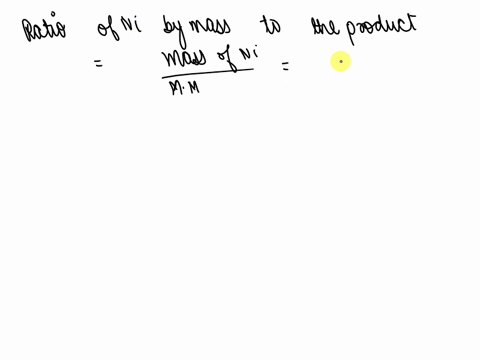 Ratio of Ni by mass to the product
= mass of Ni =
M.M